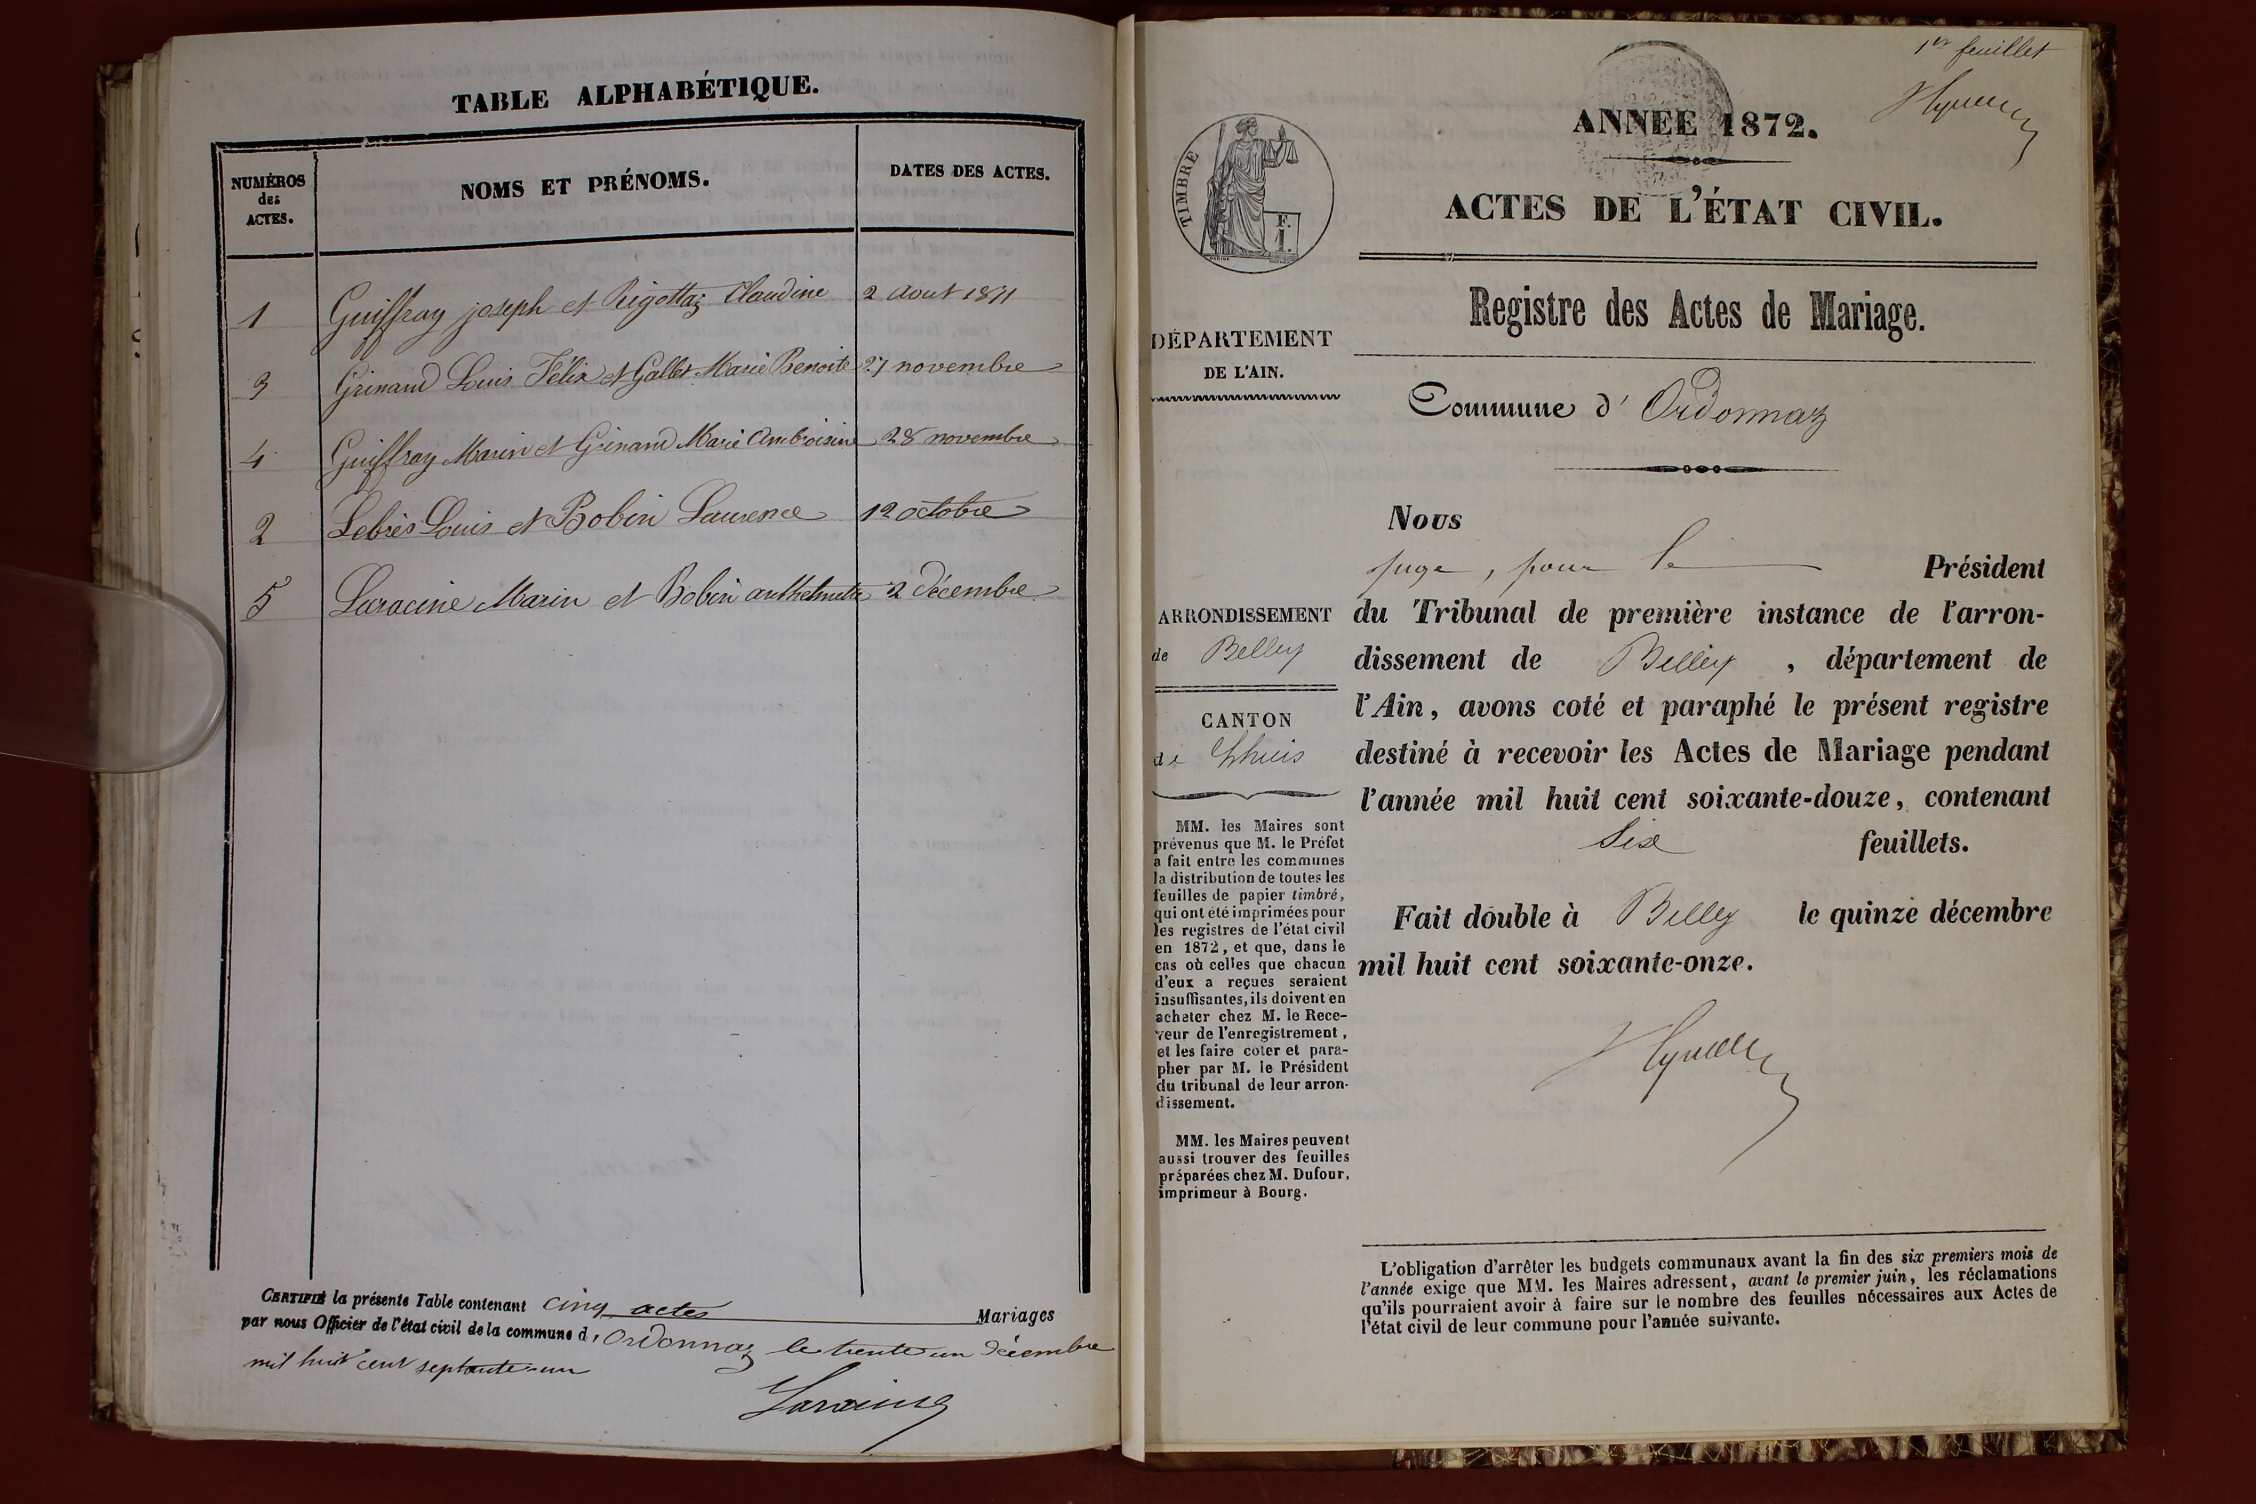 TABLE ALPHABÉTIQUE.
NUMÉROS
des
ACTES.
NOMS ET PRÉNOMS.
DATES DES ACTES.
1 Guiffray joseph et Rigottaz Claudine 2 aout 1871
3 Grinand Louis Félix et Gallet Marie Benoite 27 novembre
4 Guiffray Marin et Grinand Marie Ambroisine 28 novembre
2 Lebrès Louis et Bobin Laurence 12 octobre
5 Laracine Marin et Bobin anthelmette 2 décembre
CERTIFIÉ la présente Table contenant cinq actes Mariages
par nous Officier de l'état civil de la commune d'Ordonnaz le trente un décembre
mil huit cent septante-un
Laracine
1er feuillet
ANNEE 1872.
ACTES DE L'ÉTAT CIVIL.
Registre des Actes de Mariage.
Commune d'Ordonnaz
TIMBRE
F.
1.
DÉPARTEMENT
DE L'AIN.
ARRONDISSEMENT
de Belley
CANTON
de Lhuis
MM. les Maires sont
prévenus que M. le Préfet
a fait entre les communes
la distribution de toutes les
feuilles de papier timbré,
qui ont été imprimées pour
les registres de l'état civil
en 1872, et que, dans le
cas où celles que chacun
d'eux a reçues seraient
insuffisantes, ils doivent en
acheter chez M. le Rece-
veur de l'enregistrement,
et les faire coter et para-
pher par M. le Président
du tribunal de leur arron-
dissement.
MM. les Maires peuvent
aussi trouver des feuilles
préparées chez M. Dufour,
imprimeur à Bourg.
Nous
juge, pour le Président
du Tribunal de première instance de l'arron-
dissement de Belley, département de
l'Ain, avons coté et paraphé le présent registre
destiné à recevoir les Actes de Mariage pendant
l'année mil huit cent soixante-douze, contenant
Six feuillets.
Fait double à Belley le quinze décembre
mil huit cent soixante-onze.
L'obligation d'arrêter les budgets communaux avant la fin des six premiers mois de
l'année exige que MM. les Maires adressent, avant le premier juin, les réclamations
qu'ils pourraient avoir à faire sur le nombre des feuilles nécessaires aux Actes de
l'état civil de leur commune pour l'année suivante.